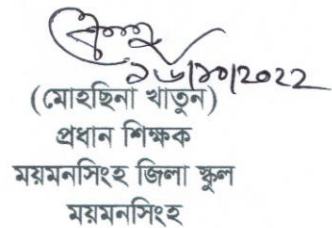 ১৬/১০/2022
(মোহছিনা খাতুন)
প্রধান শিক্ষক
ময়মনসিংহ জিলা স্কুল
ময়মনসিংহ